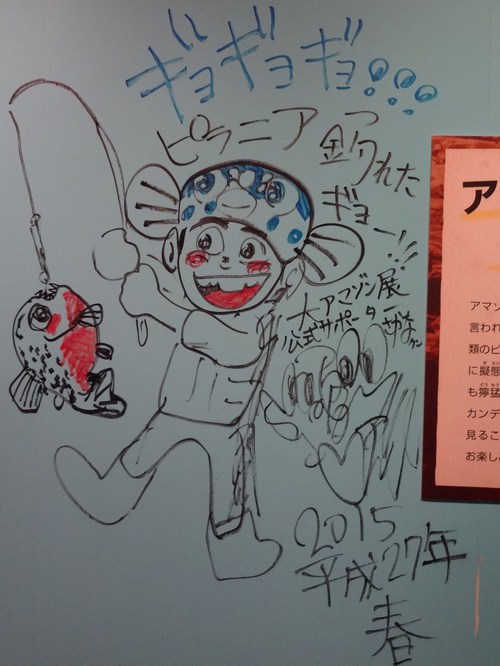 ギョギョギョ!!!
ピラニア釣れた
ギョー!!
大アマゾン展
公式サポーター
さかなクン
2015
平成27年
春
ア
アマ
言われ
類のピ
に擬態
も獰猛
カンデ
見るこ
お楽し